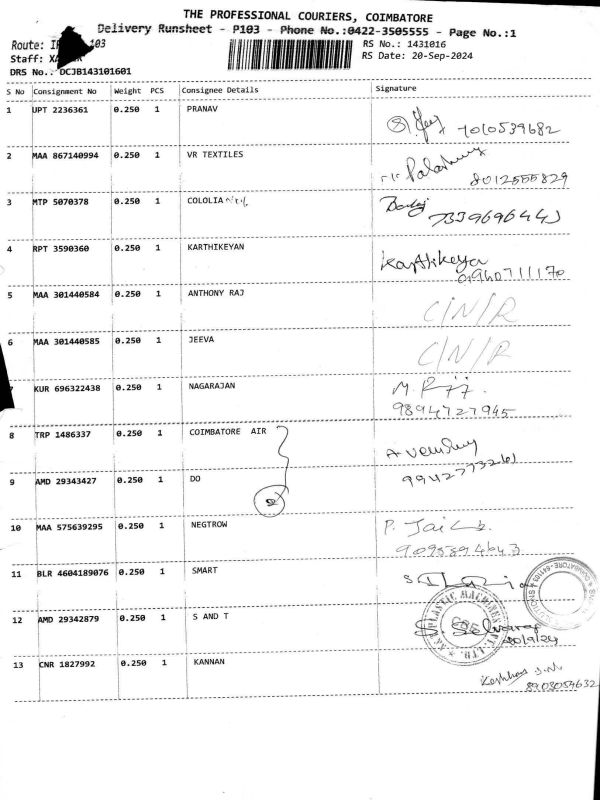 THE PROFESSIONAL COURIERS, COIMBATORE
Delivery Runsheet - P103 - Phone No.:0422-3505555 - Page No.:1
Route: 103
RS No.: 1431016
Staff:
RS Date: 20-Sep-2024
DRS No.: DCJB143101601
S No Consignment No Weight PCS Consignee Details Signature
1 UPT 2236361 0.250 1 PRANAV
7010539682
2 MAA 867140994 0.250 1 VR TEXTILES
8012555829
3 MTP 5070378 0.250 1 COLOLIA
7339696443
4 RPT 3590360 0.250 1 KARTHIKEYAN
Karthikeya
01960711170
5 MAA 301440584 0.250 1 ANTHONY RAJ C/N/R
6 MAA 301440585 0.250 1 JEEVA C/N/R
KUR 696322438 0.250 1 NAGARAJAN
9894727945
8 TRP 1486337 0.250 1 COIMBATORE AIR
9 AMD 29343427 0.250 1 DO
9942773261
10 MAA 575639295 0.250 1 NEGTROW
9095894643
11 BLR 4604189076 0.250 1 SMART
12 AMD 29342879 0.250 1 S AND T
Selvaraj
20/9/24
13 CNR 1827992 0.250 1 KANNAN
8903054632